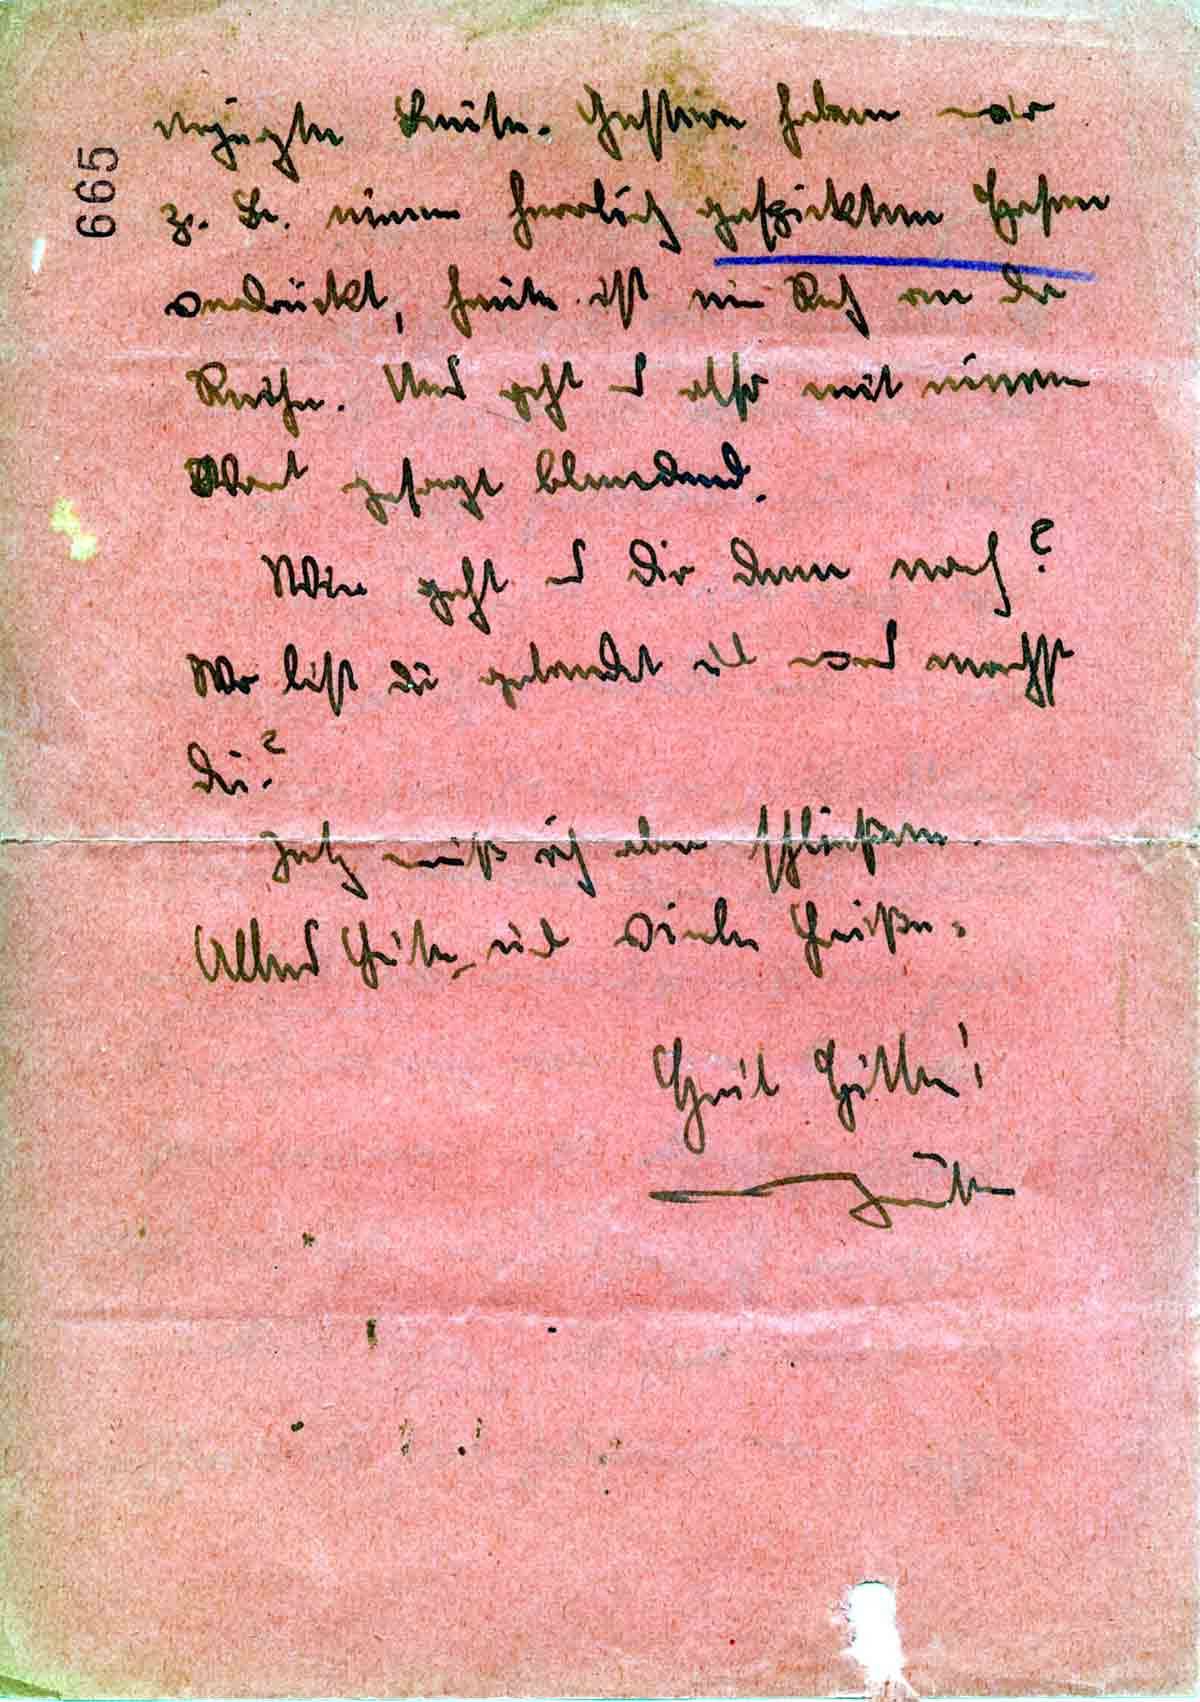 665
Leute. Gestern haben wir
z. B. einen herrlich gespickten Hasen
verdrückt, heute ist ein Reh an der
Reihe. Uns geht es also mit einem
Wort gesagt blendend.
Wie geht es Dir denn noch?
Wo bist du gelandet und was machst
du?
Jetz muß ich aber schließen.
Alles Gute und viele Grüße.
Heil Hitler!